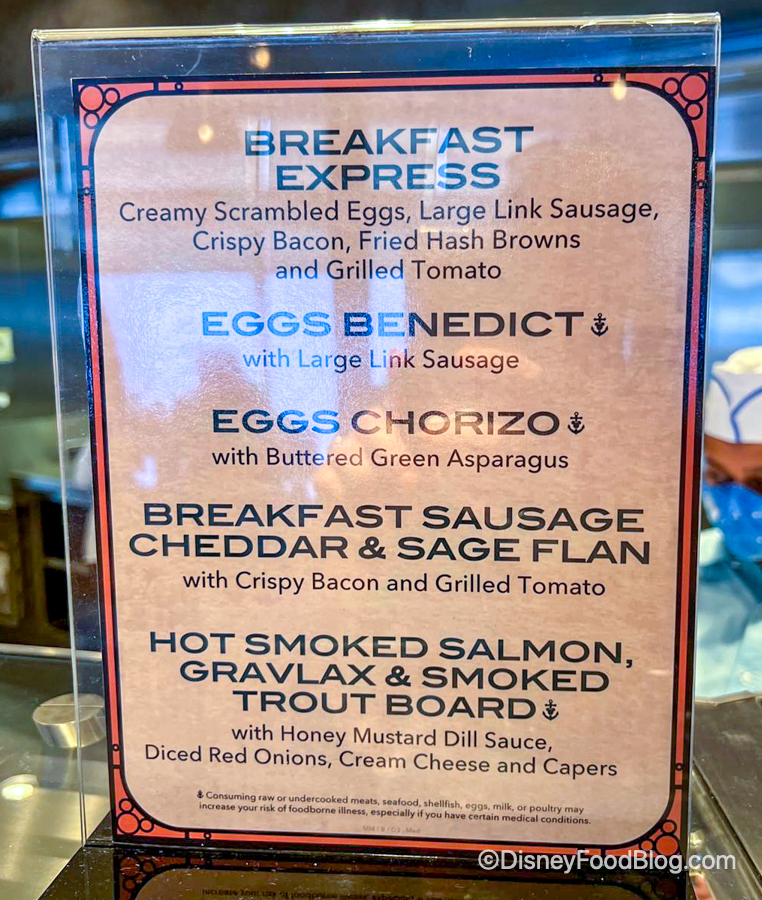 BREAKFAST
EXPRESS
Creamy Scrambled Eggs, Large Link Sausage,
Crispy Bacon, Fried Hash Browns
and Grilled Tomato
EGGS BENEDICT⚓
with Large Link Sausage
EGGS CHORIZO⚓
with Buttered Green Asparagus
BREAKFAST SAUSAGE
CHEDDAR & SAGE FLAN
with Crispy Bacon and Grilled Tomato
HOT SMOKED SALMON,
GRAVLAX & SMOKED
TROUT BOARD⚓
with Honey Mustard Dill Sauce,
Diced Red Onions, Cream Cheese and Capers
⚓Consuming raw or undercooked meats, seafood, shellfish, eggs, milk, or poultry may
increase your risk of foodborne illness, especially if you have certain medical conditions.
©DisneyFoodBlog.com